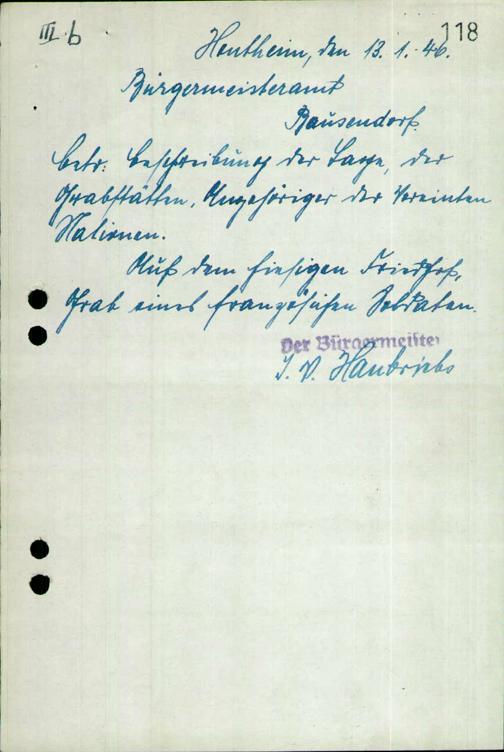 III b
118
Hontheim, den 13. 1. 46.
Bürgermeisteramt
Bausendorf.
betr. Beschreibung der Lage, der
Grabstätten, Angehöriger der Vereinten
Nationen.
Auf dem hiesigen Friedhof,
Grab eines französischen Soldaten.
Der Bürgermeister
I. V. Haubrichs